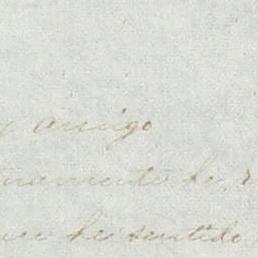 y amigo
namente he r
que he sentido